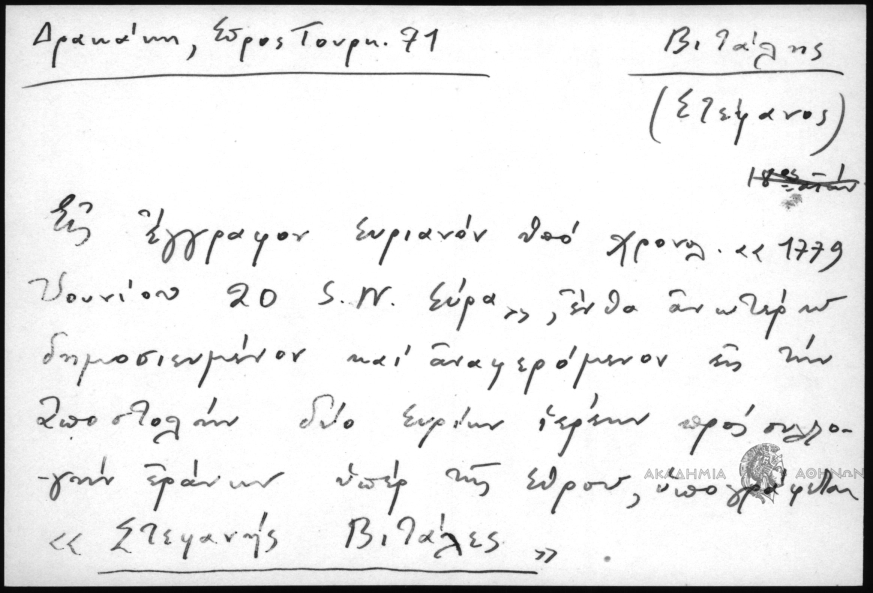 Δρακάκη, Σύρος Τουρκ. 71
Βιτάλης
(Στέφανος)
18ος αἰών
Εἰς ἔγγραφον Συριανόν ὑπό χρονολ. «1779
Ἰουνίου 20 S.N. Σύρα», ἔνθα ἀνωτέρω
δημοσιευμένον καί ἀναφερόμενον εἰς τήν
ἀποστολήν δύο Συρίων ἱερέων πρός συλλο-
-γήν ἐράνων ὑπέρ τῆς Σύρου, ὑπογράφεται
« Στεφανής Βιτάλες »
ΑΚΑΔΗΜΙΑ ΑΘΗΝΩΝ